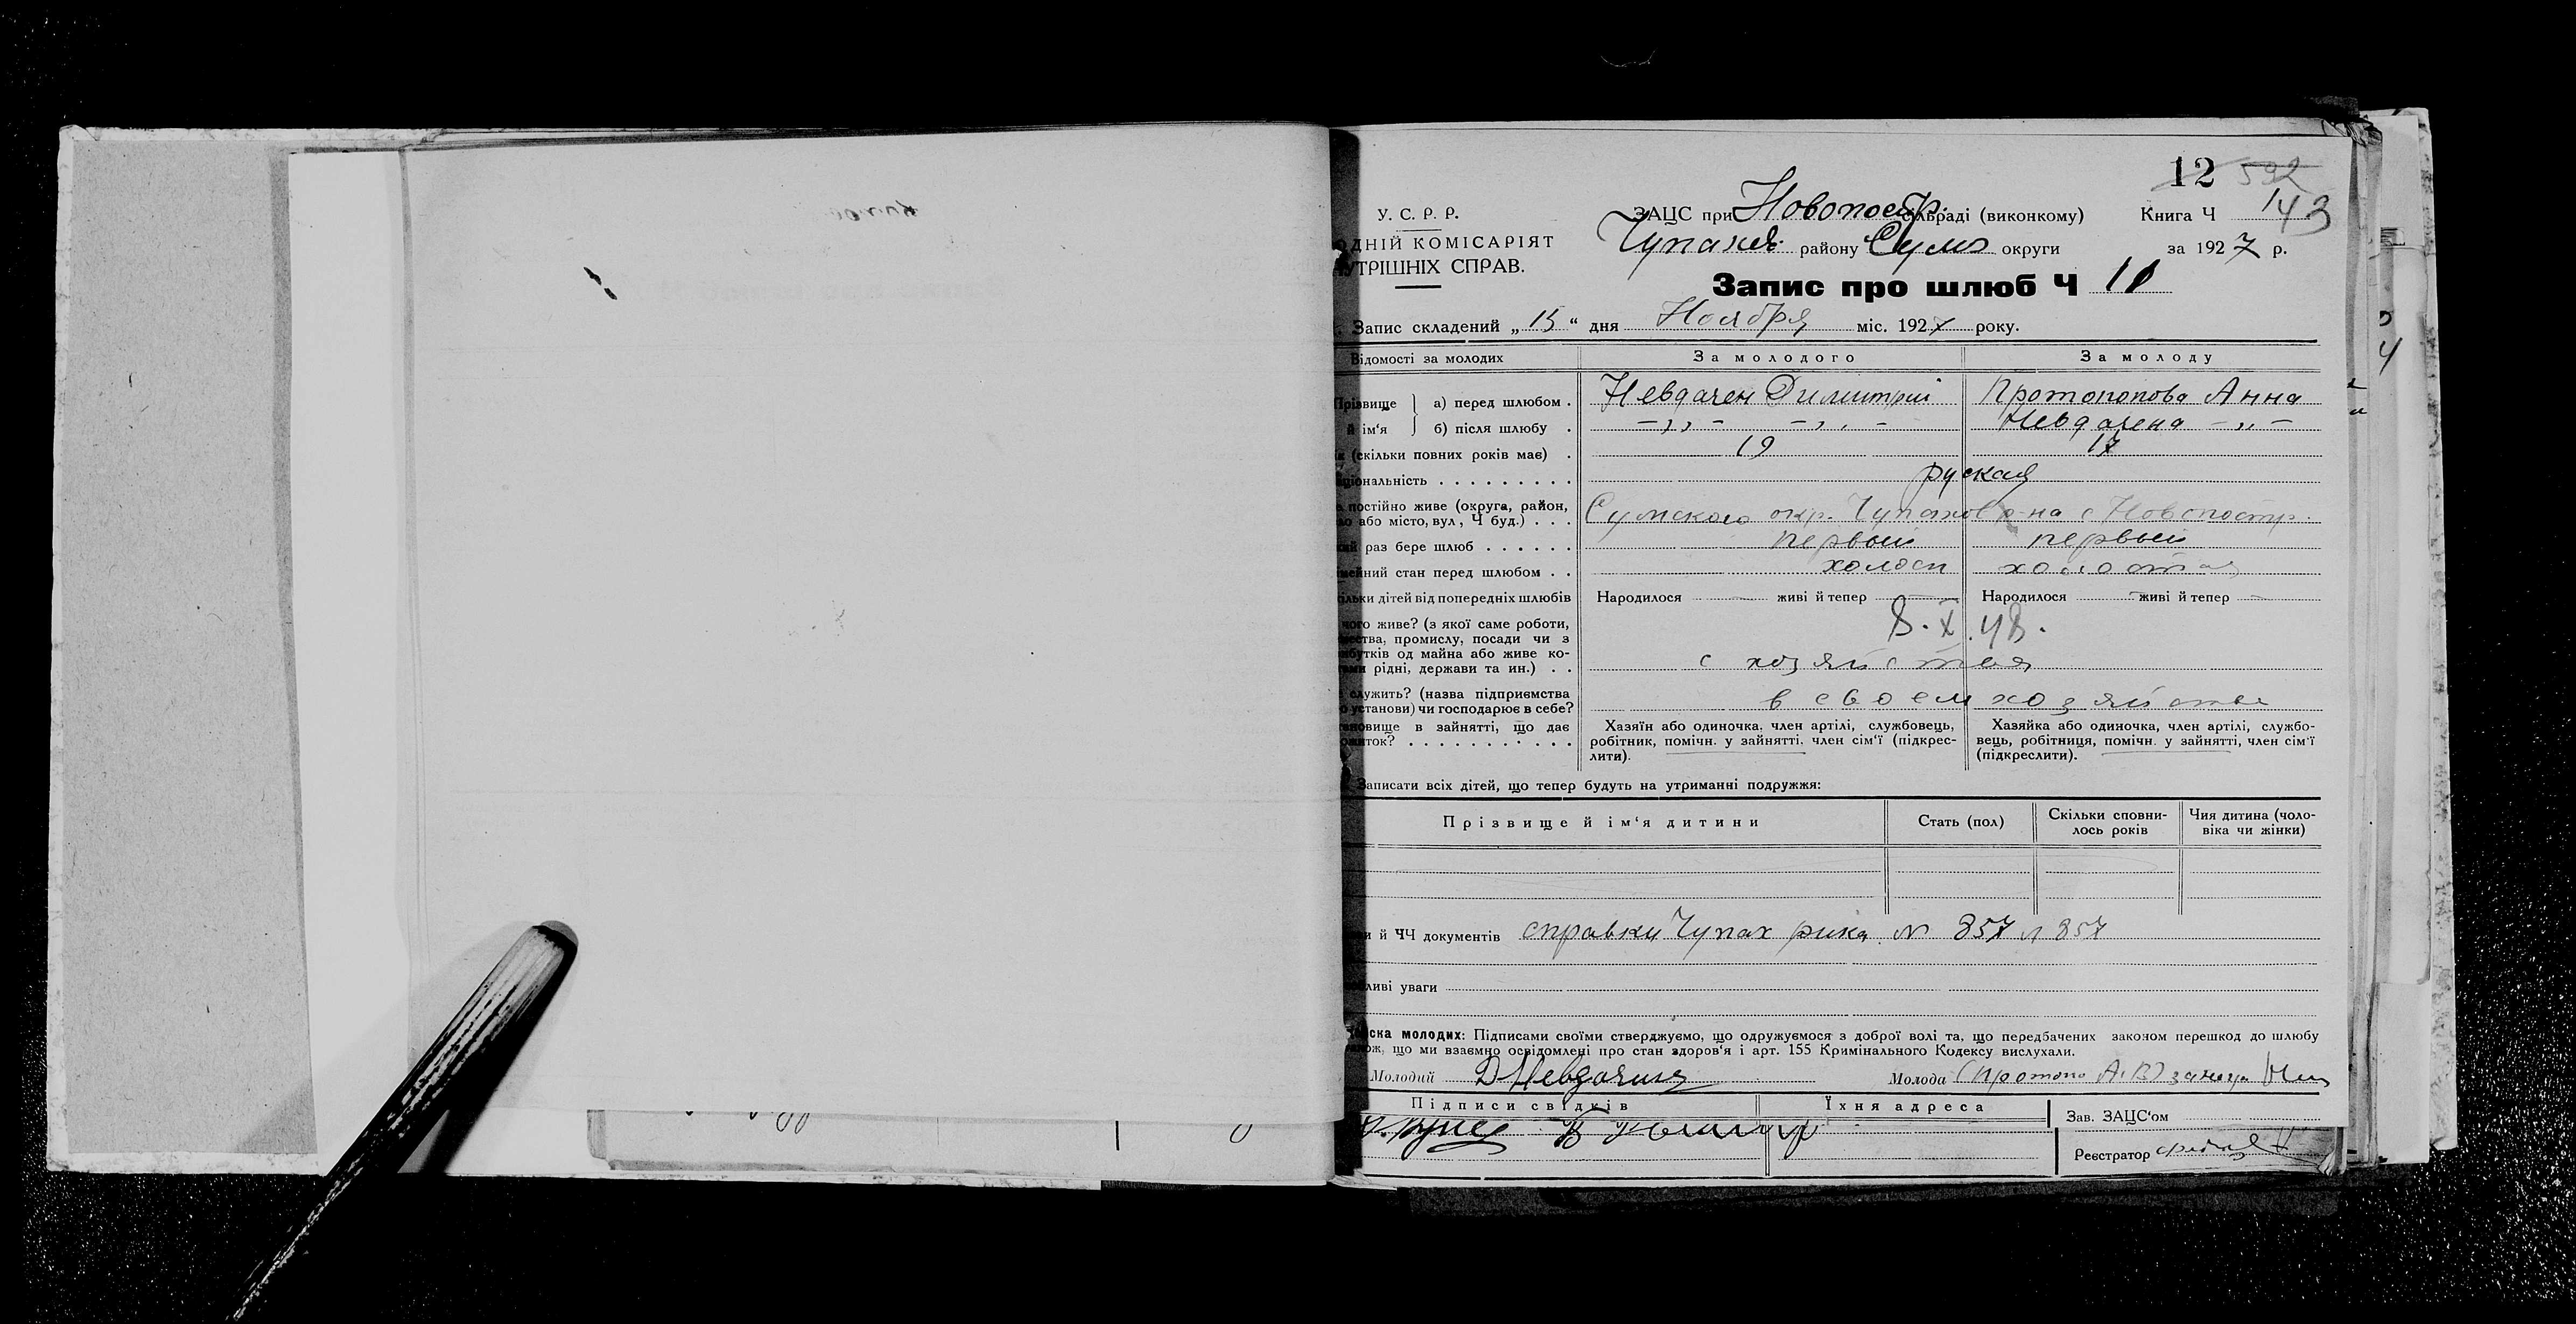 12 592
143
У. С. Р. Р.
ЗАЦС при Новопостр. сільраді (виконкому) Книга Ч
ОДНІЙ КОМІСАРІЯТ
Чупахов. району Сумс округи за 1927 р.
УТРІШНІХ СПРАВ.
Запис про шлюб Ч 11
Запис складений „15“ дня Ноября міс. 1927 року.
Відомості за молодих За молодого За молоду
Прізвище й ім‘я а) перед шлюбом . Невдачен Димитрий Протопопова Анна
б) після шлюбу . –„– –„– Невдачена –„–
(скільки повних років має) . 19 17
ціональність . . . . . . . . . руская
постійно живе (округа, район,
або місто, вул, Ч буд.) . . . Сумского окр. Чупахов р-на с Новопостр.
раз бере шлюб . . . . . . первый первый
мейний стан перед шлюбом . . холост холостая
ільки дітей від попередніх шлюбів Народилося — живі й тепер — Народилося — живі й тепер —
8.X.48.
чого живе? (з якої саме роботи,
ества, промислу, посади чи з
ибутків од майна або живе ко-
ами рідні, держави та ин.) . . с хозяйства
служить? (назва підприємства
установи) чи господарює в себе? в своем хозяйстве
ановище в зайнятті, що дає
ожиток? . . . . . . . . . . .
Хазяїн або одиночка, член артілі, службовець,
робітник, помічн. у зайнятті, член сім‘ї (підкрес-
лити).
Хазяйка або одиночка, член артілі, службо-
вець, робітниця, помічн. у зайнятті, член сім‘ї
(підкреслити).
Записати всіх дітей, що тепер будуть на утриманні подружжя:
Прізвище й ім‘я дитини Стать (пол) Скільки сповни-
лось років Чия дитина (чоло-
віка чи жінки)
й ЧЧ документів справки Чупах рика N 857 и 857
ливі уваги
ска молодих: Підписами своїми стверджуємо, що одружуємося з доброї волі та, що передбачених законом перешкод до шлюбу
ож, що ми взаємно освідомлені про стан здоров‘я і арт. 155 Кримінального Кодексу вислухали.
Молодий Д Невдачин Молода (Протопо А. В)
Підписи свідків Їхня адреса
Зав. ЗАЦС‘ом
Реєстратор